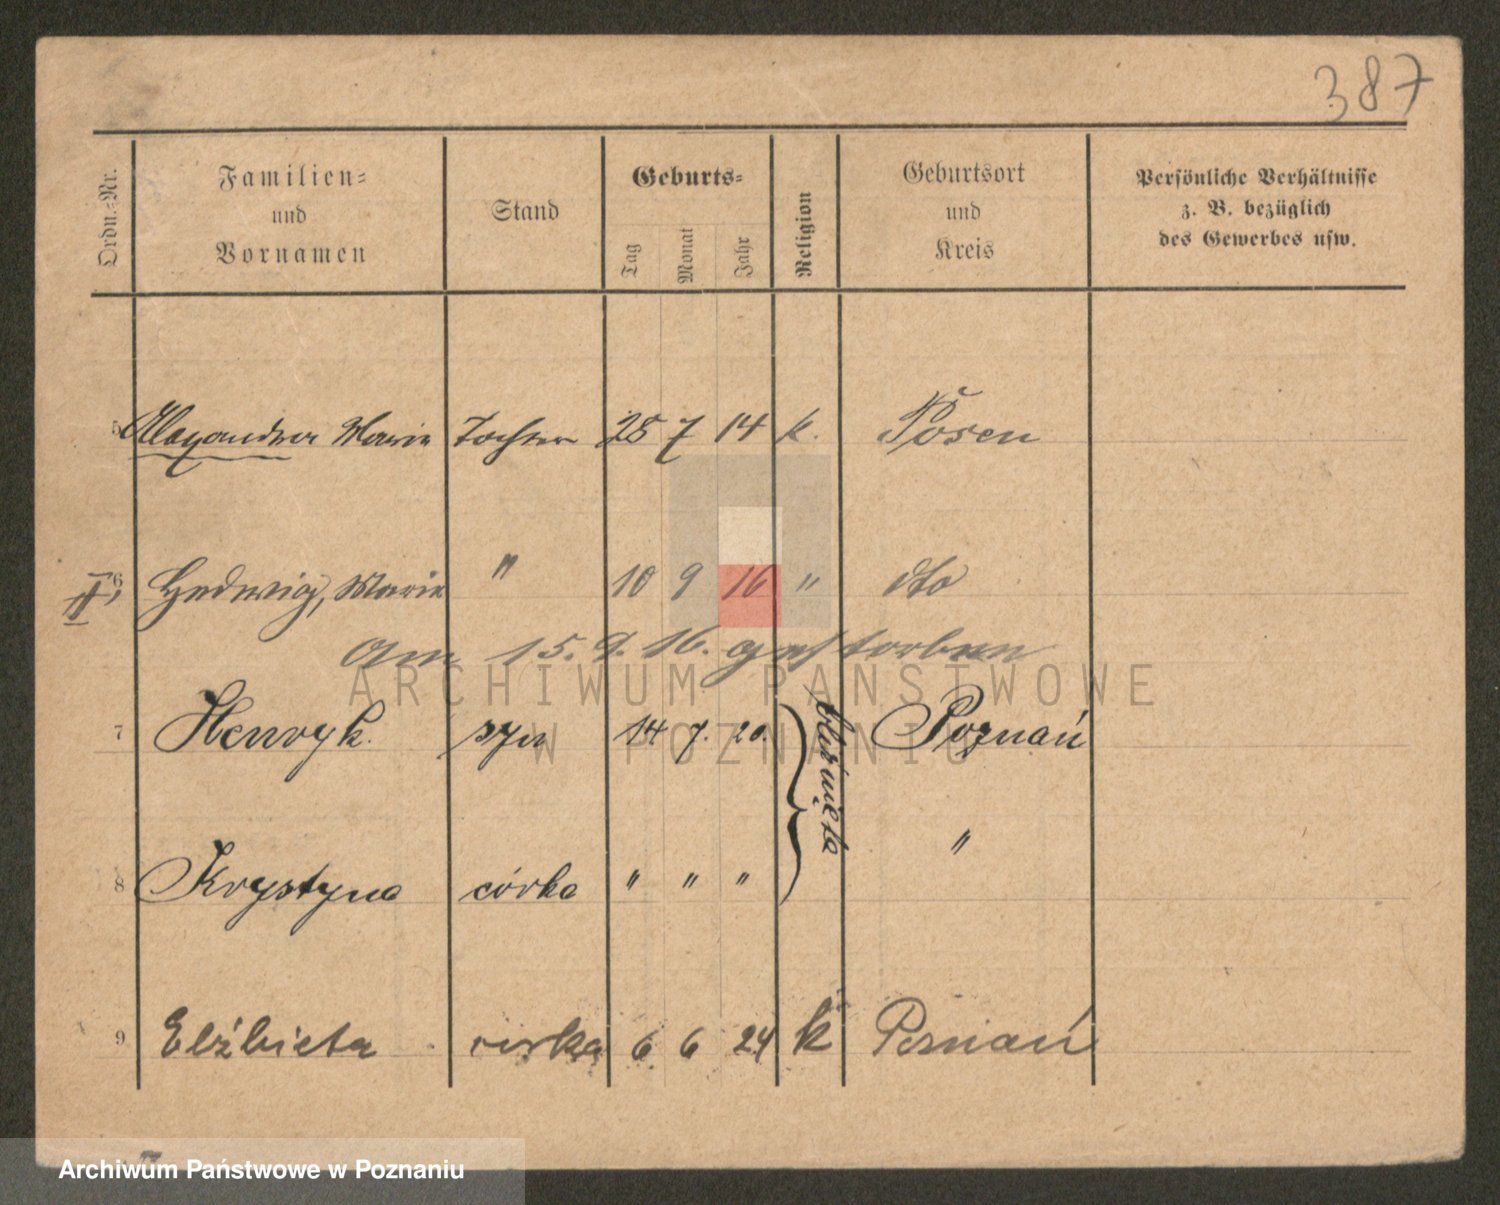 387
Ordn.-Nr.
Familien-
und
Vornamen
Stand
Geburts-
Tag
Monat
Jahr
Religion
Geburtsort
und
Kreis
Persönliche Verhältnisse
z. B. bezüglich
des Gewerbes usw.
5 Alexandra Marie Tochter 25 7 14 k. Posen
6 Hedwig, Marie " 10 9 16 " dto
am 15. 9. 16. gestorben
7 Henryk. syn 14 7. 20. Poznań
bliźnięta
8 Krystyna córka " " " "
9 Elżbieta córka 6 6 24 k Poznań
ARCHIWUM PAŃSTWOWE
W POZNANIU
Archiwum Państwowe w Poznaniu